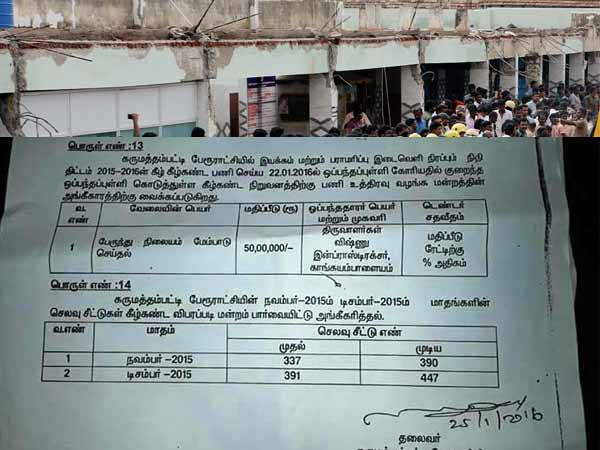 பொருள் எண் :13
கருமத்தம்பட்டி பேரூராட்சியில் இயக்கம் மற்றும் பராமரிப்பு இடைவெளி நிரப்பும் நிதி
திட்டம் 2015-2016ன் கீழ் கீழ்கண்ட பணி செய்ய 22.01.2016ல் ஒப்பந்தப்புள்ளி கோரியதில் குறைந்த
ஒப்பந்தப்புள்ளி கொடுத்துள்ள கீழ்கண்ட நிறுவனத்திற்கு பணி உத்திரவு வழங்க மன்றத்தின்
அங்கீகாரத்திற்கு வைக்கப்படுகிறது.
வ. எண் வேலையின் பெயர் மதிப்பீடு (ரூ) ஒப்பந்ததாரர் பெயர் மற்றும் முகவரி டெண்டர் சதவீதம்
1 பேருந்து நிலையம் மேம்பாடு செய்தல் 50,00,000/- திருவாளர்கள் விஷ்ணு இன்ப்ராஸ்டிரக்சர், காங்கயம்பாளையம் மதிப்பீடு ரேட்டிற்கு % அதிகம்
பொருள் எண் :14
கருமத்தம்பட்டி பேரூராட்சியின் நவம்பர்-2015ம் டிசம்பர்-2015ம் மாதங்களின்
செலவு சீட்டுகள் கீழ்கண்ட விபரப்படி மன்றம் பார்வையிட்டு அங்கீகரித்தல்.
வ.எண் மாதம் செலவு சீட்டு எண்
முதல் முடிய
1 நவம்பர் -2015 337 390
2 டிசம்பர் -2015 391 447
25/1/2016
தலைவர்